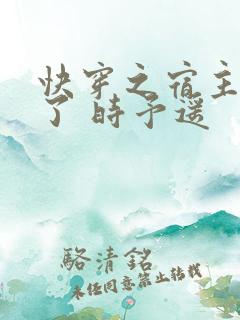 快穿之宿主
了 時予遥
駱清銘
未经同意禁止转载